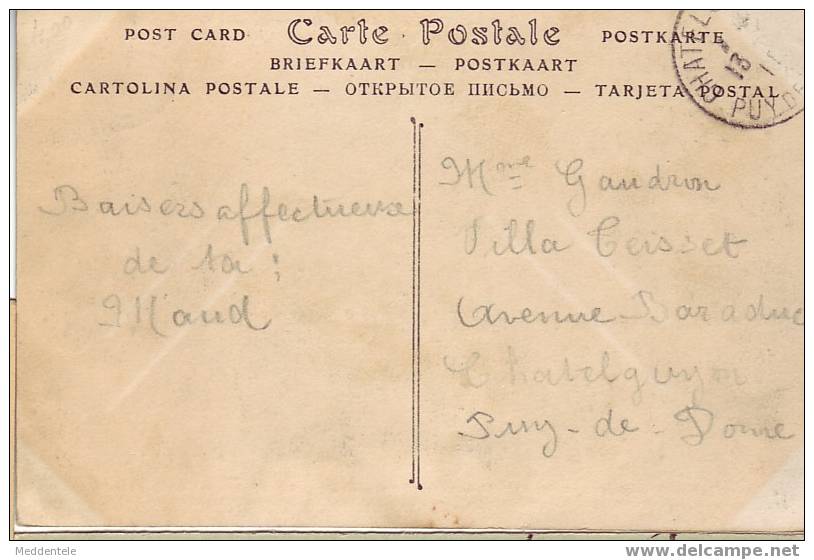 POST CARD Carte Postale POSTKARTE
BRIEFKAART — POSTKAART
CARTOLINA POSTALE — ОТКРЫТОЕ ПИСЬМО — TARJETA POSTAL
CHATEL
13
PUY-DE
Baisers affectueux
de ta :
Maud
Mme Gaudron
Villa Teisset
Avenue Baraduc
Chatelguyon
Puy-de-Dome
Meddentele
delcampe.net